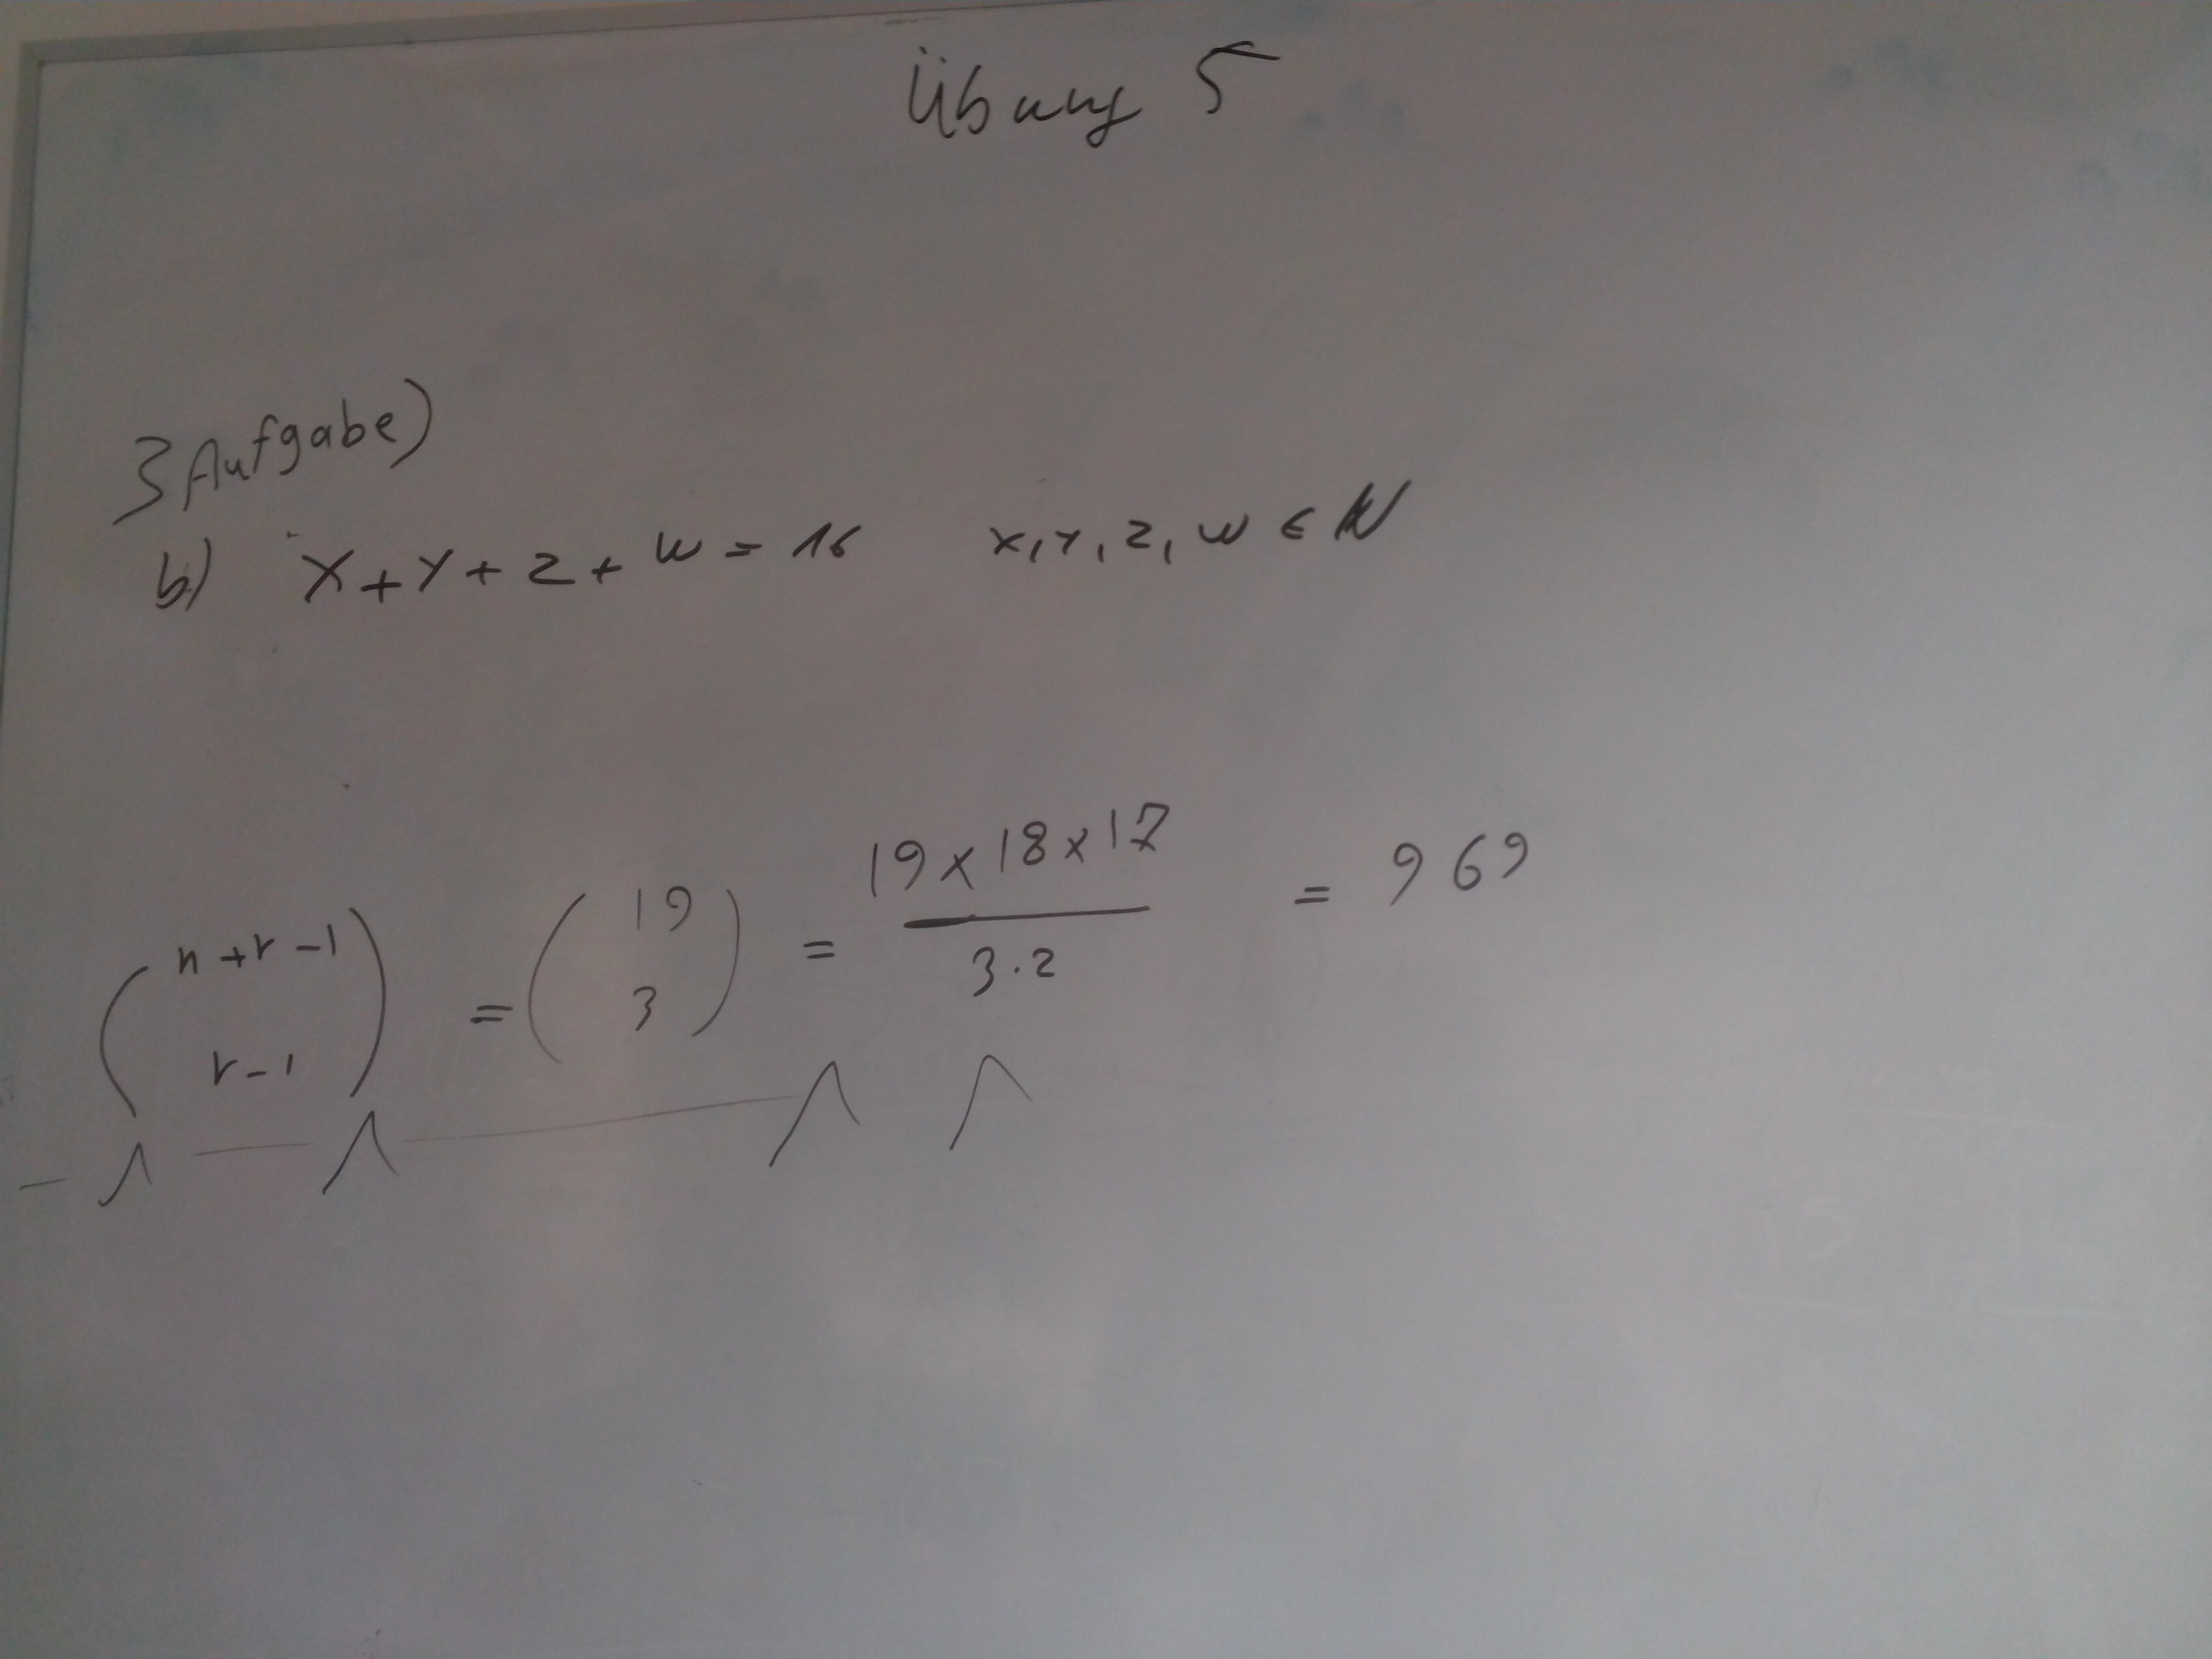 Übung 5
3 Aufgabe)
b) x + y + z + w = 16 x, y, z, w ∈ ℕ
(n + r - 1 / r - 1) = (19 / 3) = 19 x 18 x 17 / 3 · 2 = 969